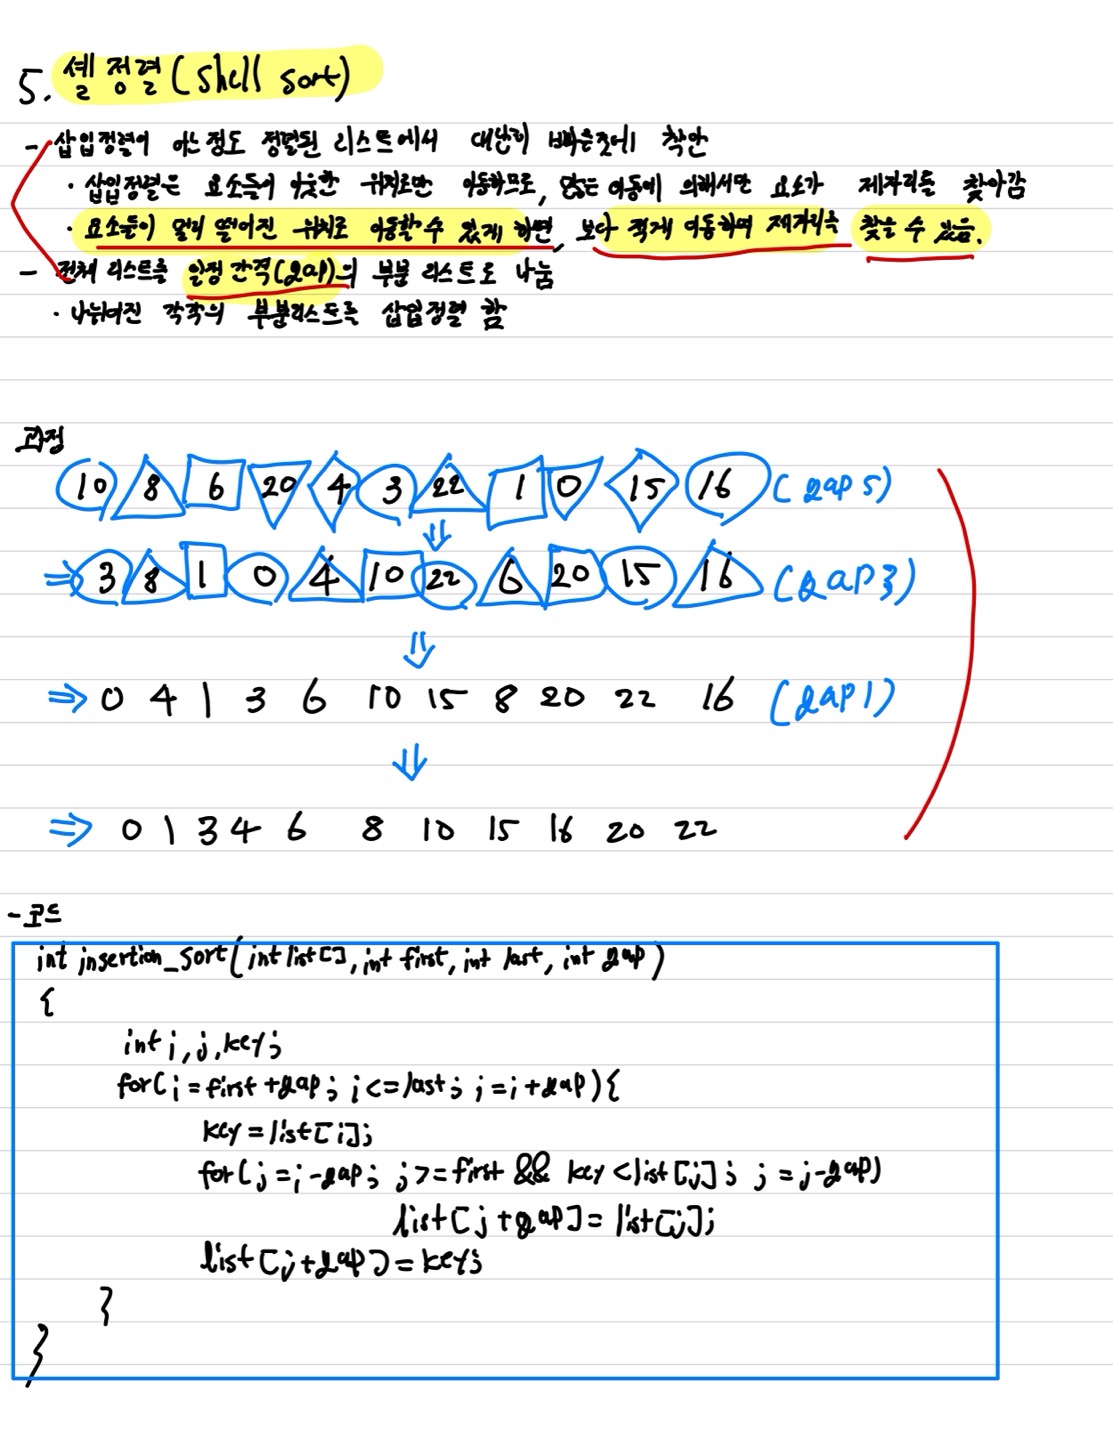 5. 셸 정렬 (shell sort)
- 삽입정렬이 어느정도 정렬된 리스트에서 대단히 빠른것에 착안
· 삽입정렬은 요소들이 이웃한 위치로만 이동하므로, 많은 이동에 의해서만 요소가 제자리를 찾아감
· 요소들이 멀리 떨어진 위치로 이동할수 있게 하면, 보다 적게 이동하며 제자리를 찾을 수 있음.
- 전체 리스트를 일정 간격(gap)의 부분 리스트로 나눔
· 나뉘어진 각각의 부분리스트를 삽입정렬 함
과정
10 8 6 20 4 3 22 1 0 15 16 (gap 5)
⇓
⇒ 3 8 1 0 4 10 22 6 20 15 16 (gap3)
⇓
⇒ 0 4 1 3 6 10 15 8 20 22 16 (gap1)
⇓
⇒ 0 1 3 4 6 8 10 15 16 20 22
- 코드
int insertion_sort(int list[], int first, int last, int gap)
{
int i, j, key;
for(i = first + gap; i <= last; i = i + gap){
key = list[i];
for(j = i - gap; j >= first && key < list[j]; j = j - gap)
list[j + gap] = list[j];
list[j + gap] = key;
}
}